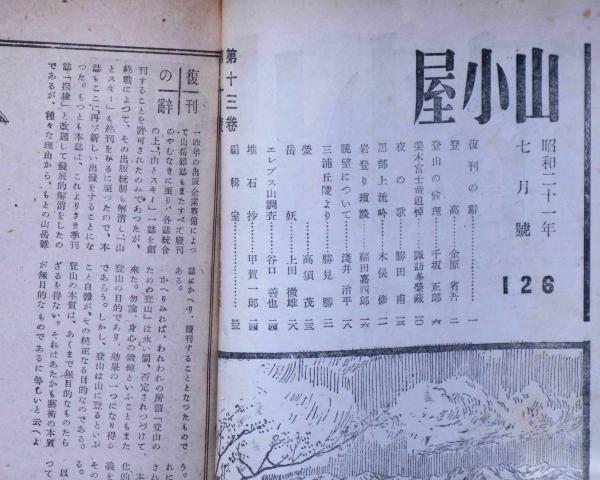 山小屋
昭和二十一年
七月號
126
復刊の辭……一
登高……金原省吾…二
登山の倫理……千坂正郎…六
美木富士哉追悼……諏訪多榮藏…一〇
夜の歌……勝田甫…三
黑部上流吟……木俣修…二
岩登り瑣談……福田嘉四郎…一六
眺望について……淺井治平…一八
三浦丘陵より……勝見勝…二
螢……高須茂…三
岳妖……上田徹雄…二八
エレブス山調査……谷口善也…四
堆石抄……甲賀一郎…四
編輯室……三
第十三卷
復刊の辭
一昨年の出版企業整備によつ
て山岳雜誌もまたすべて廢刊
のやむなきに至り、各誌統合
の上「山とスキー」一誌を創
刊することを許可されたのみであつたが、
終戰によつて、その出版統制も解消し「山
とスキー」も終刊をみるに至つたので、本
誌もここに再び新しい出發をすることにな
つたもつとも本誌は、これよりさき季刊
誌「探檢」と改題して發展的解消をしたの
であるが、種々な理由から、もとの山岳雜
誌にかへり、復刊することとなつたもので
ある。
かへりみれば、われわれの所謂「登山の
ための登山」は永い間、否定されつづけて
來た。勿論、身心の鍛練といふこともまた
登山の目的であり、効果の一つになり得る
であらう。しかし、登山は山に登るといふ
こと自體が、その純正なる目的なのである。
登山の本質は、あくまで無目的なものたら
ざるを得ない。それはあたかも藝術の本質
が無目的なものであるに等しいと云へよ
う。